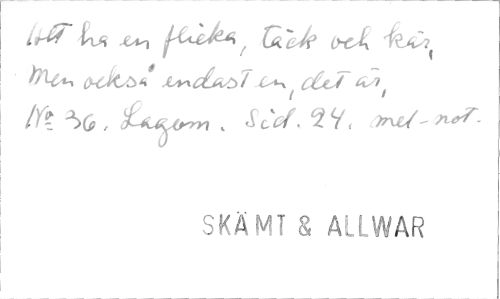 Att ha en flicka, täck och kär,
Men också endast en, det är,
No 36. Lagom. Sid. 24. mel-not.
SKÄMT & ALLWAR